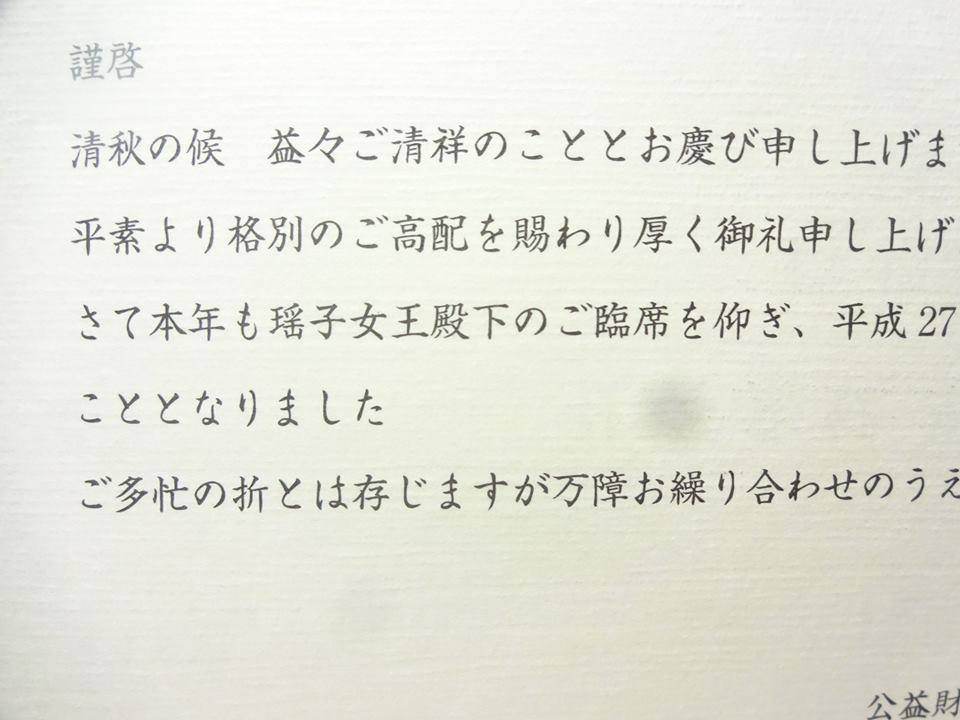 謹啓
清秋の候　益々ご清祥のこととお慶び申し上げま
平素より格別のご高配を賜わり厚く御礼申し上げ
さて本年も瑶子女王殿下のご臨席を仰ぎ、平成27
こととなりました
ご多忙の折とは存じますが万障お繰り合わせのうえ
公益財